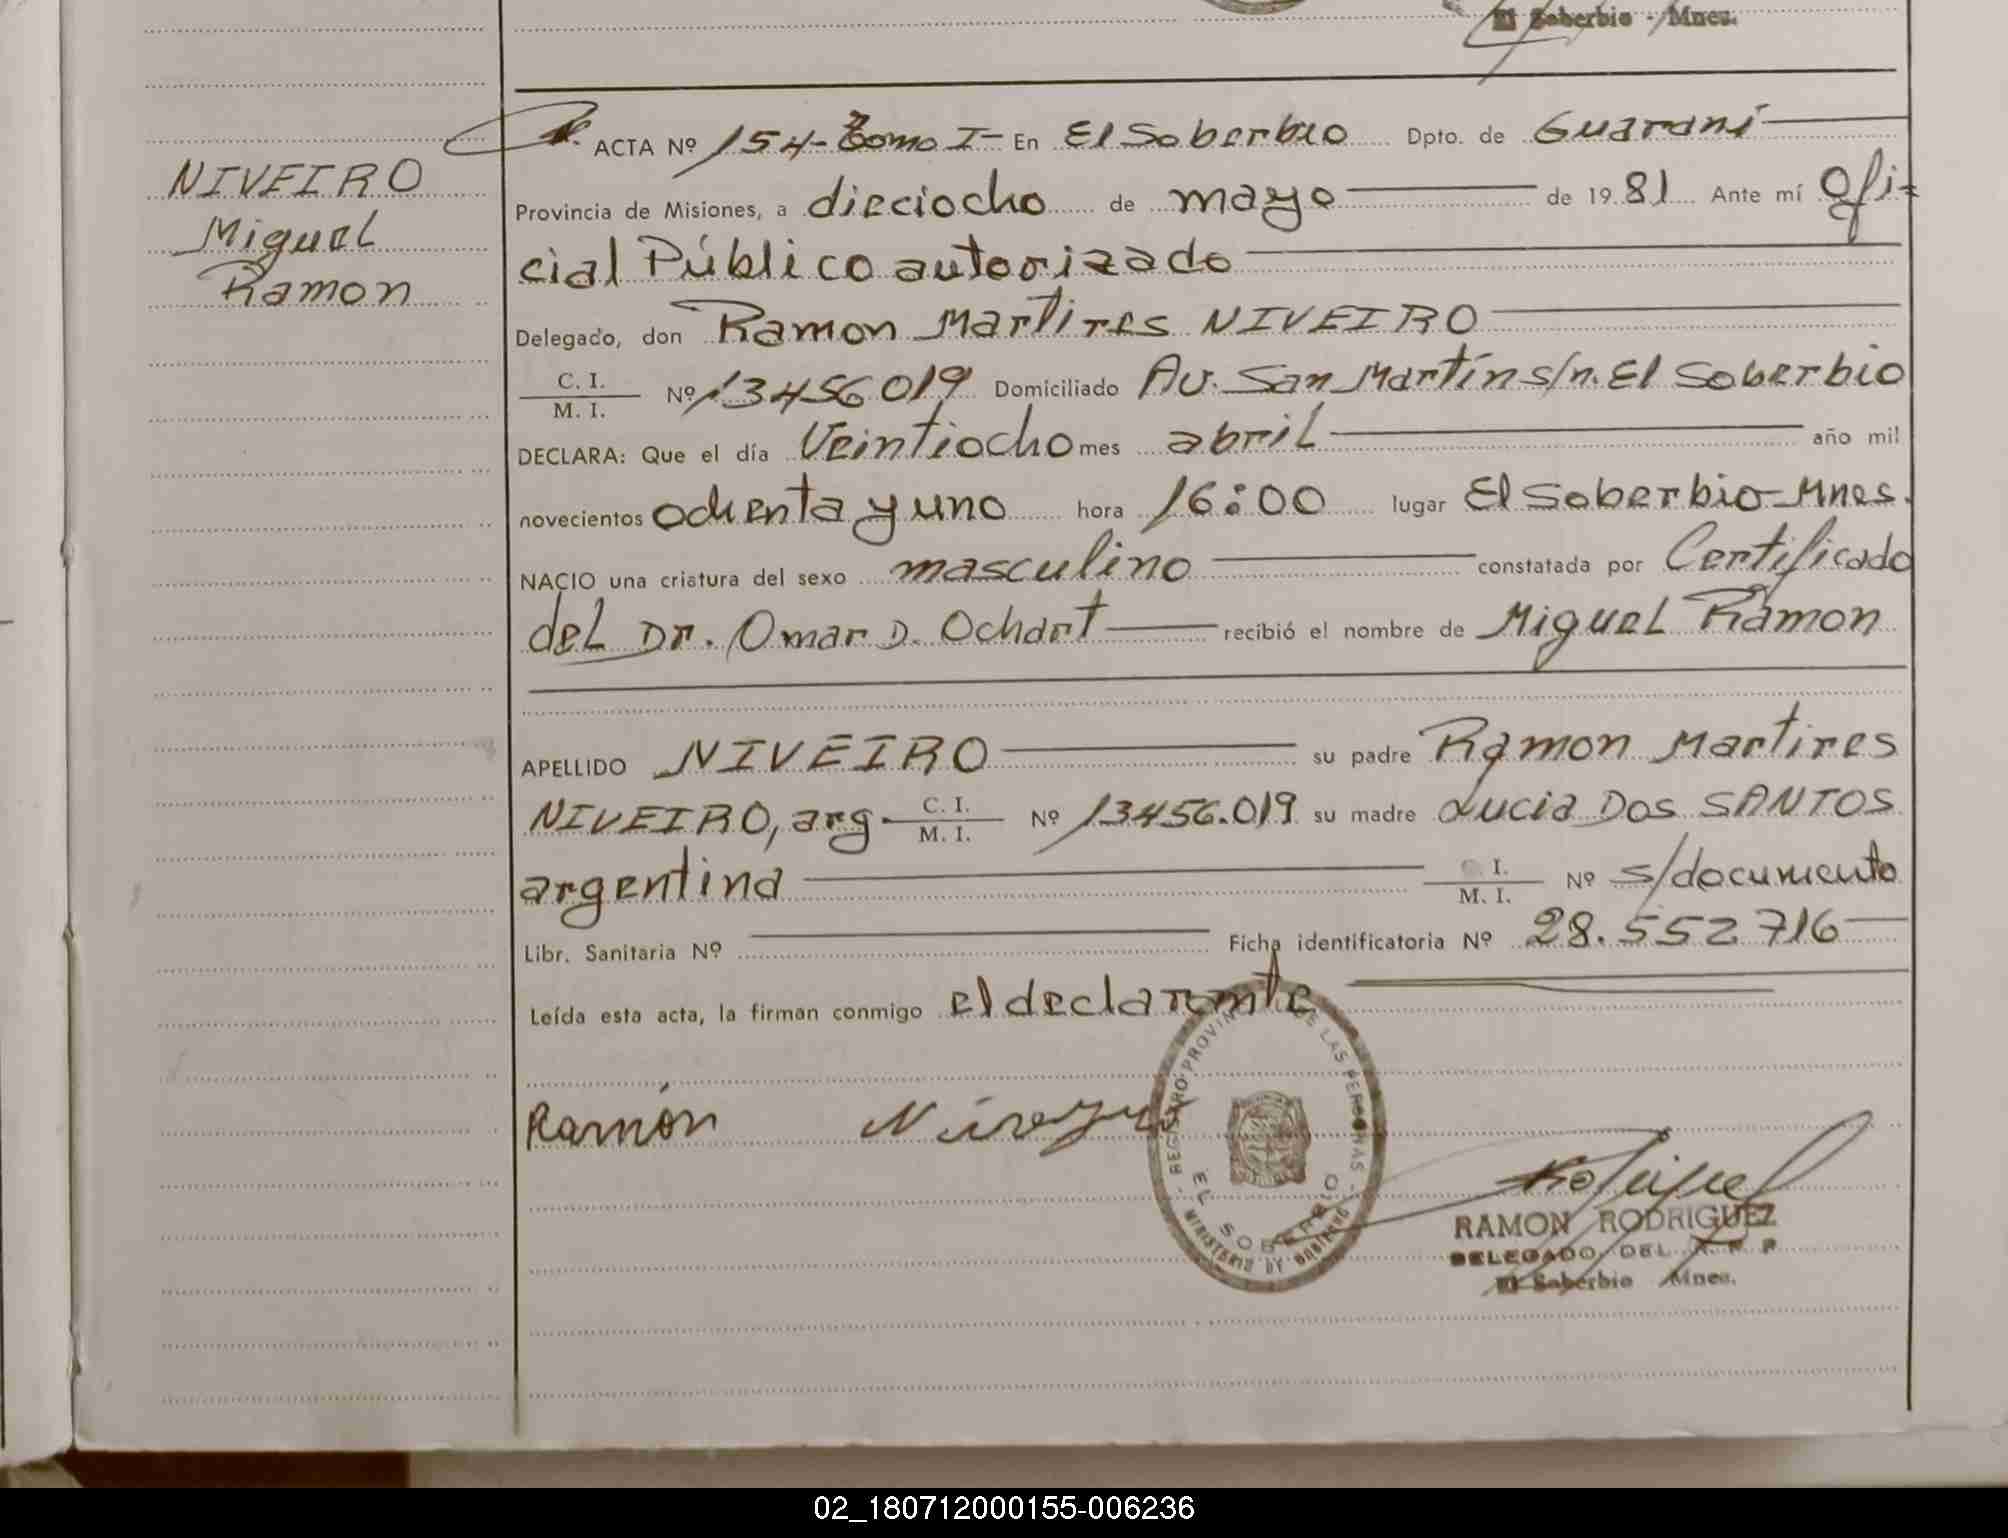 El Soberbio - Mnes.
NIVEIRO
Miguel
Ramon
ACTA Nº 154- Tomo I- En El Soberbio Dpto. de Guaraní
Provincia de Misiones, a dieciocho de mayo de 1981 Ante mí Ofi-
cial Público autorizado
Delegado, don Ramon Martires NIVEIRO
C. I.
M. I. Nº 13456019 Domiciliado Av. San Martín s/n. El Soberbio
DECLARA: Que el día Veintiocho mes abril año mil
novecientos ochenta y uno hora 16:00 lugar El Soberbio-Mnes.
NACIO una criatura del sexo masculino constatada por Certificado
del Dr. Omar D. Ochart recibió el nombre de Miguel Ramon
APELLIDO NIVEIRO su padre Ramon Martires
NIVEIRO, arg. C. I.
M. I. Nº 13456.019 su madre Lucia DOS SANTOS
argentina I.
M. I. Nº s/documento
Libr. Sanitaria Nº Ficha identificatoria Nº 28.552.716
Leída esta acta, la firman conmigo el declarante
Ramón
REGISTRO PROVINCIAL DE LAS PERSONAS
EL SOBERBIO
MINISTERIO DE GOBIERNO
RAMON RODRIGUEZ
DELEGADO DEL R P P
El Soberbio Mnes.
02_180712000155-006236